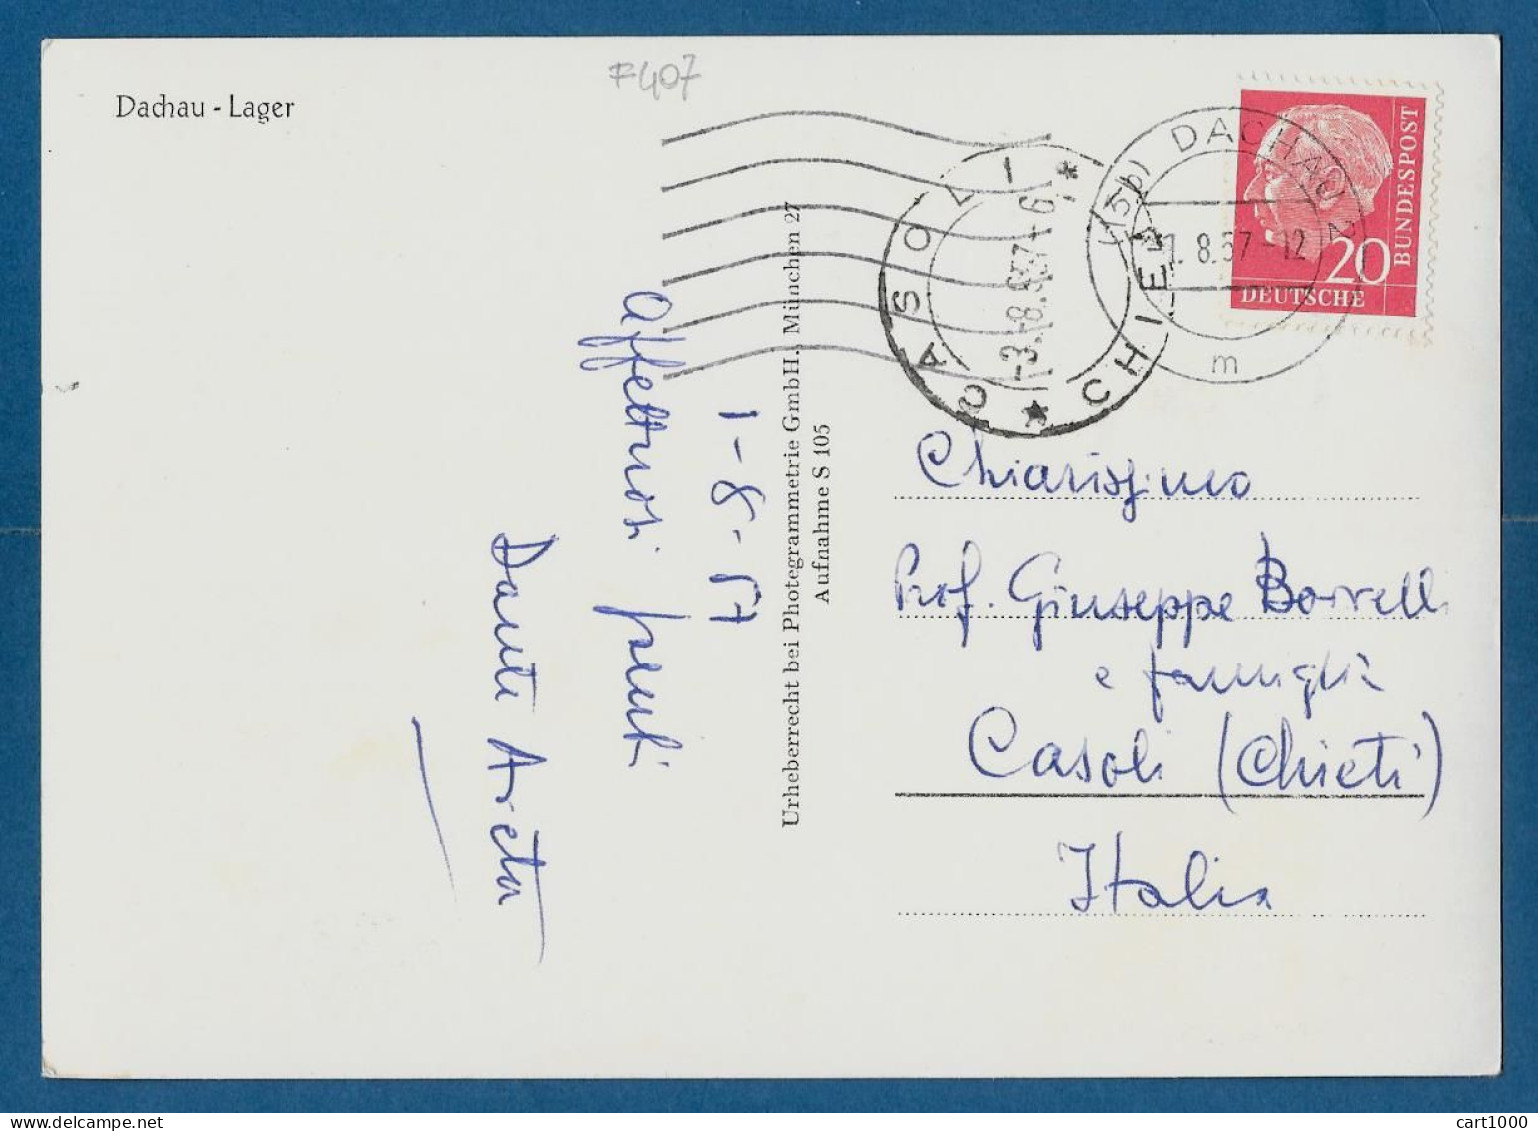 F407
Dachau - Lager
BUNDESPOST
20
DEUTSCHE
(13b) DACHAU 2
1. 8. 57 - 12
m
CASOLI * CHIETI *
-3.-8.57-6
Urheberrecht bei Photegrammetrie GmbH., München 27
Aufnahme S 105
1-8-57
Affettuosi saluti
Dante Areta
Chiarissimo
Prof. Giuseppe Borrelli
e famiglia
Casoli (Chieti)
Italia
cart1000